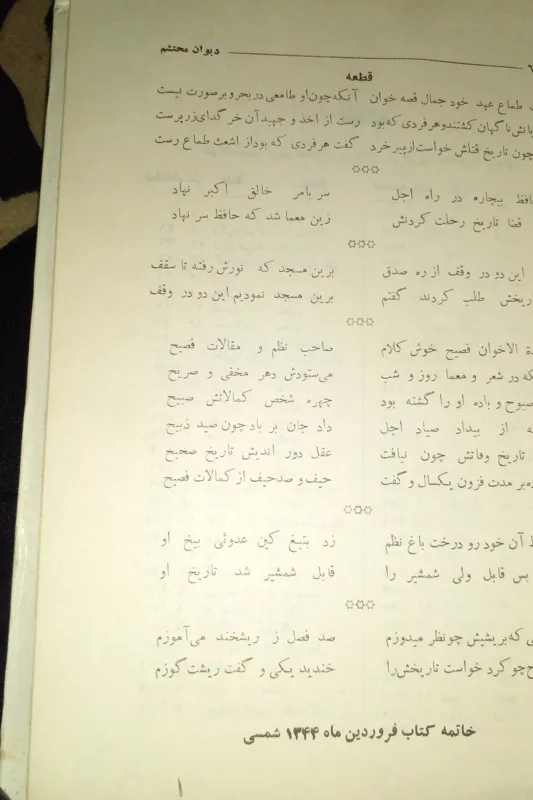 دیوان محتشم
قطعه
طماع عهد خود جمال قصه خوان آنکه چون او طامعی در بحر و بر صورت نیست
ناگهان کشتند و هر فردی که بود رست از اخذ و جهید آن خر گدای زر پرست
چون تاریخ قتلش خواست از پیر خرد گفت هر فردی که بود از اشعث طماع رست
بیچاره در راه اجل سر بامر خالق اکبر نهاد
قضا تاریخ رحلت کردنش زین معما شد که حافظ سر نهاد
این دو در وقف از ره صدق برین مسجد که نورش رفته تا سقف
طلب کردند گفتم برین مسجد نمودیم این دو در وقف
الاخوان فصیح خوش کلام صاحب نظم و مقالات فصیح
که در شعر و معما روز و شب می‌ستودش دهر مخفی و صریح
صبوح و باده او را گشته بود چهره شخص کمالاتش صبیح
از بیداد صیاد اجل داد جان بر باد چون صید ذبیح
تاریخ وفاتش چون نیافت عقل دور اندیش تاریخ صحیح
بر مدت فزون یکسال و گفت حیف و صد حیف از کمالات فصیح
آن خود رو درخت باغ نظم زد بتیغ کین عدوئی بیخ او
بس قابل ولی شمشیر را قابل شمشیر شد تاریخ او
که بریشیش چو نظر میدوزم صد فصل ز ریشخند می‌آموزم
چو کرد خواست تاریخش را خندید یکی و گفت ریشت گوزم
خاتمه کتاب فروردین ماه ۱۳۴۴ شمسی